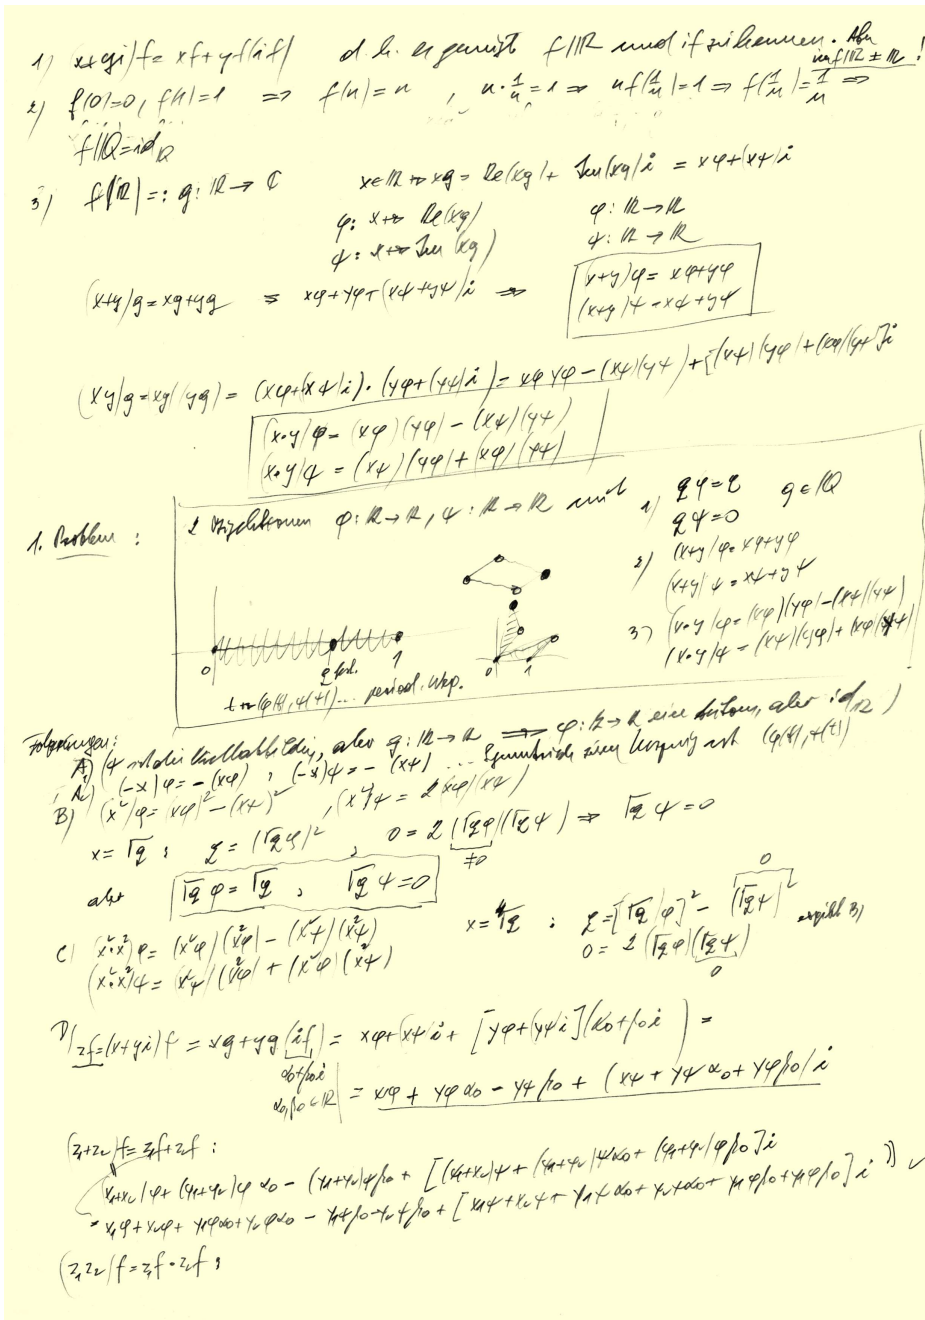 1) (x+yi)f = xf + yf(if) d.h. es genügt f|ℝ und if zu kennen. Aber
im f|ℝ ≠ ℝ !
2) f(0)=0, f(1)=1 ⇒ f(n)=n , n·1/n=1 ⇒ nf(1/n)=1 ⇒ f(1/n)=1/n ⇒
f|ℚ=id_ℚ
3) f|ℝ =: g: ℝ → ℂ x∈ℝ ↦ xg = Re(xg) + Im(xg)i = xφ+(xψ)i
φ: x ↦ Re(xg) φ: ℝ → ℝ
ψ: x ↦ Im(xg) ψ: ℝ → ℝ
(x+y)g = xg+yg = xφ+yφ+(xψ+yψ)i ⇒ (x+y)φ = xφ+yφ
(x+y)ψ = xψ+yψ
(xy)g = (xg)(yg) = (xφ+(xψ)i)·(yφ+(yψ)i) = xφ yφ − (xψ)(yψ) + [(xψ)(yφ)+(xφ)(yψ)]i
(x·y)φ = (xφ)(yφ) − (xψ)(yψ)
(x·y)ψ = (xψ)(yφ) + (xφ)(yψ)
1. Problem : φ: ℝ→ℝ, ψ: ℝ→ℝ mit 1) qφ=q q∈ℚ
qψ=0
2) (x+y)φ = xφ+yφ
(x+y)ψ = xψ+yψ
3) (x·y)φ = (xφ)(yφ) − (xψ)(yψ)
(x·y)ψ = (xψ)(yφ) + (xφ)(yψ)
0 1 0 1
t ↦ (φ(t), ψ(t)) ...
Folgerungen:
A) (ψ ist die Nullabbildung, aber g: ℝ→ℝ ⇒ φ: ℝ→ℝ ein Autom, aber id_ℝ)
(−x)φ = −(xφ) , (−x)ψ = −(xψ) ... Symmetrisch zum Ursprung ist (φ(t), ψ(t))
B) (x²)φ = (xφ)² − (xψ)² , (x²)ψ = 2(xφ)(xψ)
x = √q : q = (√q φ)² , 0 = 2(√q φ)(√q ψ) ⇒ √q ψ = 0
≠0
also √q φ = √q , √q ψ = 0
x = ⁴√q : q = [√q φ]² − (√q ψ)² ergibt B)
0
0 = 2(√q φ)(√q ψ)
0
C) (x²·x²)φ = (x²φ)(x²φ) − (x²ψ)(x²ψ)
(x²·x²)ψ = (x²ψ)(x²φ) + (x²φ)(x²ψ)
D) zf = (x+yi)f = xg+yg(if) = xφ+(xψ)i + [yφ+(yψ)i](α₀+β₀i) =
α₀+β₀i
α₀,β₀∈ℝ = xφ + yφα₀ − yψβ₀ + (xψ + yψα₀ + yφβ₀)i
(z₁+z₂)f = z₁f+z₂f :
(x₁+x₂)φ + (y₁+y₂)φα₀ − (y₁+y₂)ψβ₀ + [(x₁+x₂)ψ + (y₁+y₂)ψα₀ + (y₁+y₂)φβ₀]i
= x₁φ+x₂φ + y₁φα₀+y₂φα₀ − y₁ψβ₀−y₂ψβ₀ + [x₁ψ+x₂ψ + y₁ψα₀+y₂ψα₀ + y₁φβ₀+y₂φβ₀]i ✓
(z₁z₂)f = z₁f·z₂f :